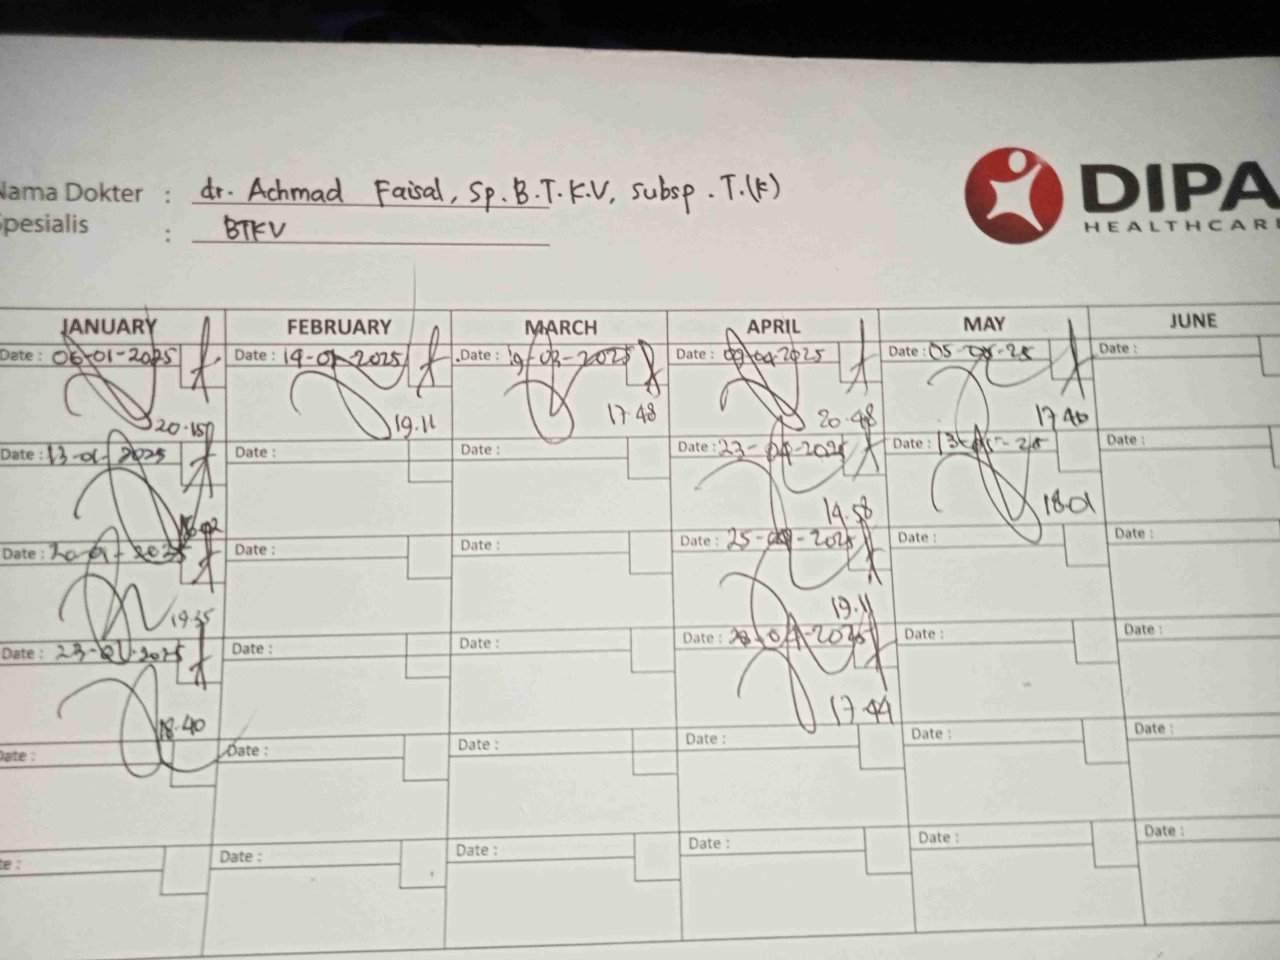 Nama Dokter : dr. Achmad Faisal, Sp.B.T.K.V, subsp. T.(K)
Spesialis : BTKV
DIPA
HEALTHCAR
JANUARY FEBRUARY MARCH APRIL MAY JUNE
Date : 06-01-2025 Date : 19-02-2025 Date : 19-03-2025 Date : 09-04-2025 Date : 05-05-25 Date :
20.15 19.11 17.48 20.48 17.40
Date : 13-01-2025 Date : Date : Date : 23-04-2025 Date : 13-05-25 Date :
14.58 18.01
Date : 20-01-2025 Date : Date : Date : 25-04-2025 Date : Date :
19.35 19.11
Date : 23-01-2025 Date : Date : Date : 28-04-2025 Date : Date :
18.40 17.44
Date : Date : Date : Date : Date : Date :
te : Date : Date : Date : Date : Date :